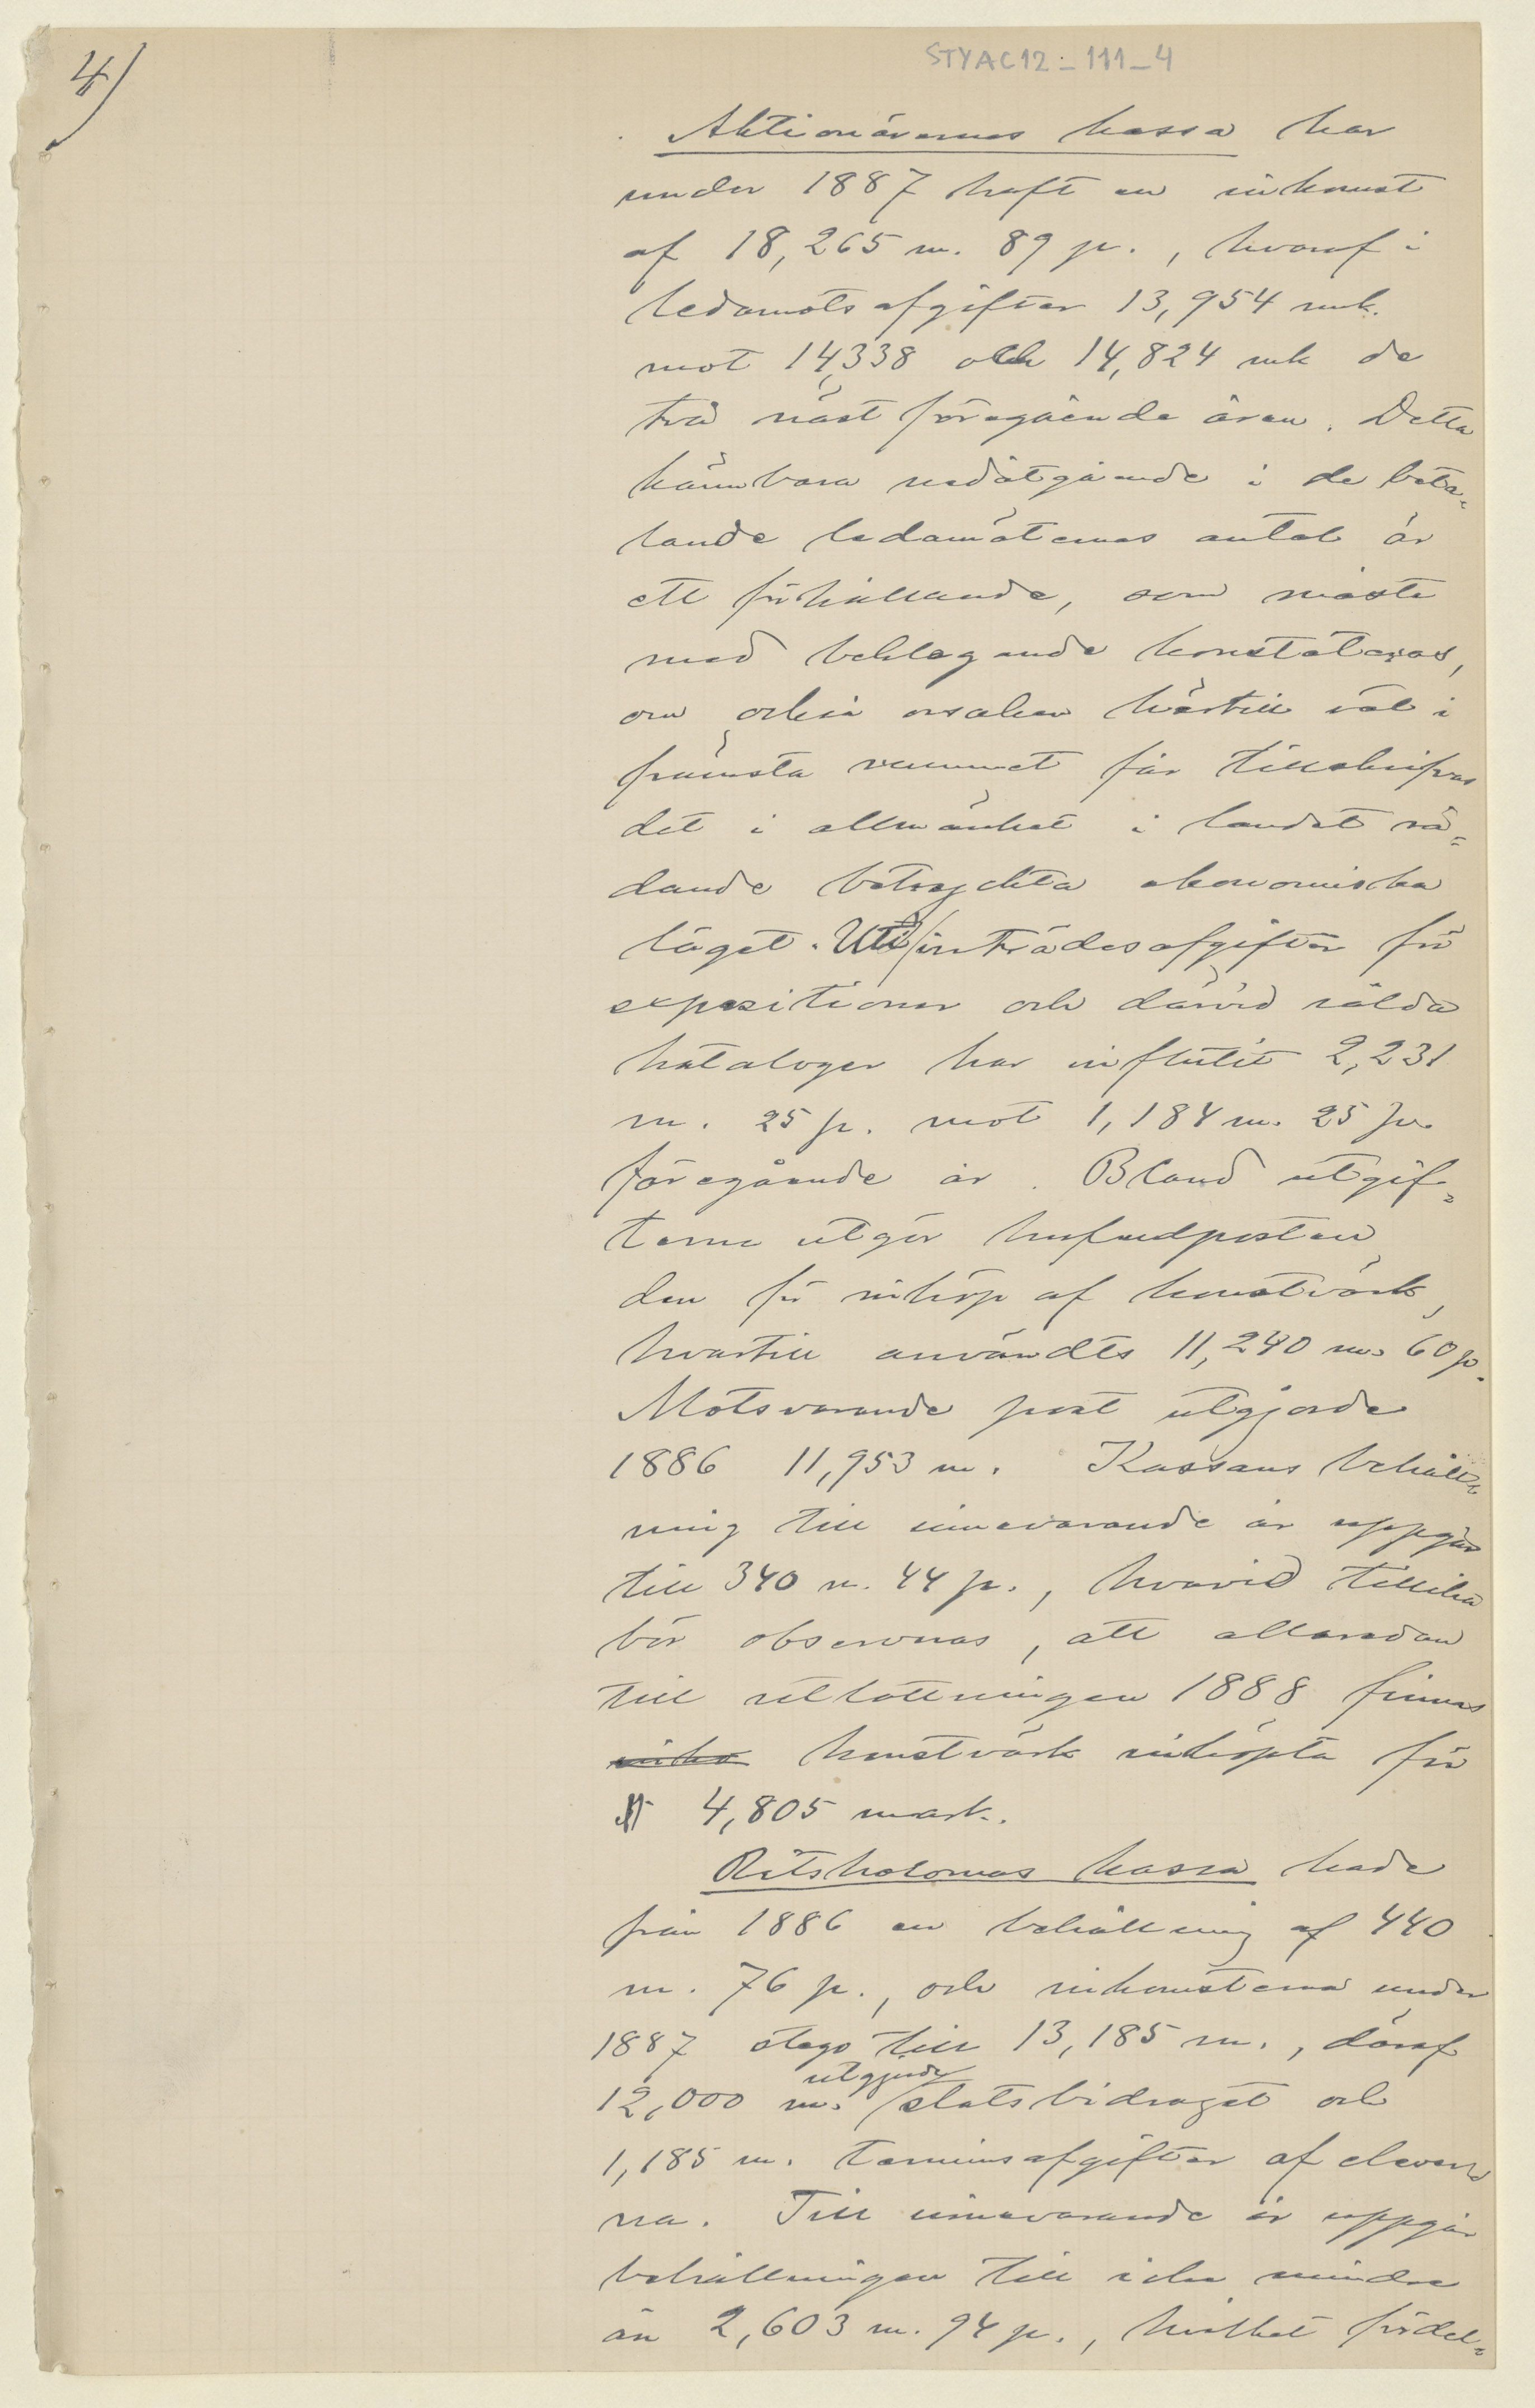 4)
STYAC12_111_4
Aktionärernas kassa har
under 1887 haft en inkomst
af 18,265 m. 89 p., hvaraf i
ledamotsafgifter 13,954 mk.
mot 14,338 och 14,824 mk de
två näst föregående åren. Detta
kännbara nedåtgående i de beta-
lande ledamöternas antal är
ett förhållande, som måste
med beklagande konstateras,
om också orsaken härtill väl i
främsta rummet får tillskrifvas
det i allmänhet i landet rå-
dande betryckta ekonomiska
läget. Uti inträdesafgifter för
expositioner och därvid sålda
kataloger har influtit 2,231
m. 25 p. mot 1,184 m. 25 p.
föregående år. Bland utgif-
terna utgör hufvudposten
den för inköp af konstvärk,
hvartill användts 11,240 m. 60 p.
Motsvarande post utgjorde
1886 11,953 m. Kassans behåll-
ning till innevarande år uppgår
till 340 m. 44 p., hvarvid tillika
bör observeras, att allaredan
till utlottningen 1888 finnas
inkö konstvärk inköpta för
4,805 mark.
Ritskolornas kassa hade
från 1886 en behållning af 440
m. 76 p., och inkomsterna under
1887 stego till 13,185 m., däraf
utgjorde
12,000 m. statsbidraget och
1,185 m. terminsafgifter af elever-
na. Till innevarande år uppgår
behållningen till icke mindre
än 2,603 m. 94 p., hvilket fördel-